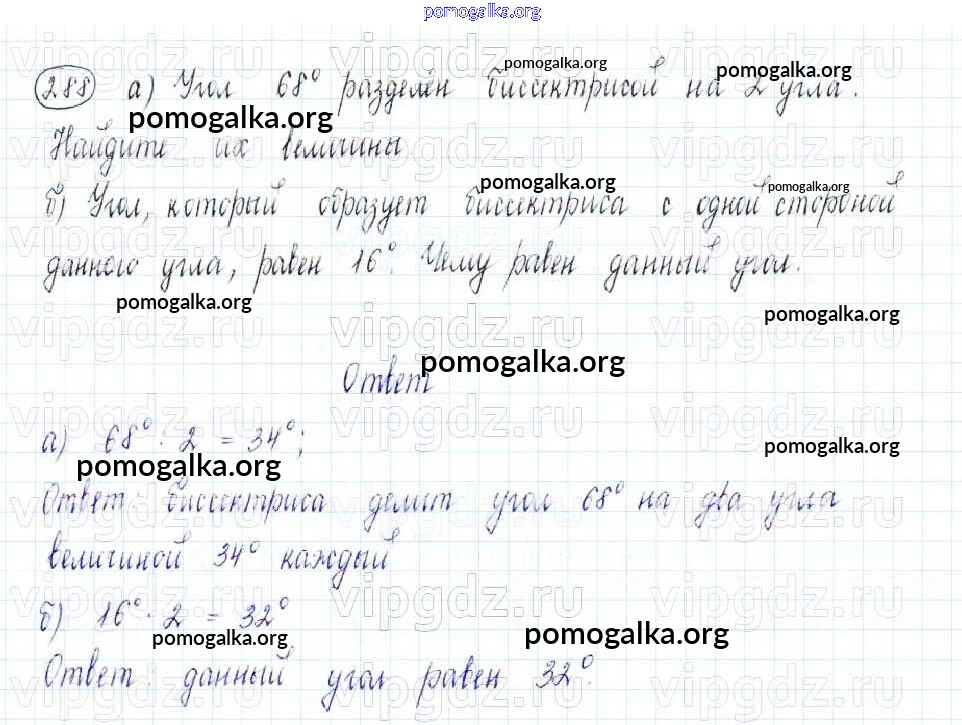 pomogalka.org
288 а) Угол 68° разделён биссектрисой на 2 угла.
Найдите их величины
б) Угол, который образует биссектриса с одной стороной
данного угла, равен 16°. Чему равен данный угол.
Ответ
а) 68° · 2 = 34°;
Ответ: биссектриса делит угол 68° на два угла
величиной 34° каждый
б) 16° · 2 = 32°
Ответ: данный угол равен 32°.
pomogalka.org
pomogalka.org
pomogalka.org
pomogalka.org
pomogalka.org
pomogalka.org
pomogalka.org
pomogalka.org
pomogalka.org
pomogalka.org
pomogalka.org
pomogalka.org
vipgdz.ru
vipgdz.ru
vipgdz.ru